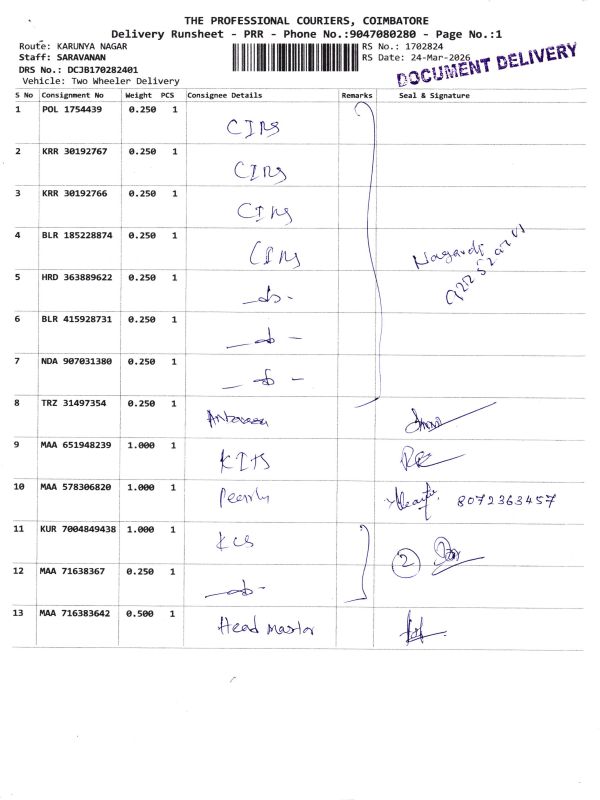 THE PROFESSIONAL COURIERS, COIMBATORE
Delivery Runsheet - PRR - Phone No.:9047080280 - Page No.:1
Route: KARUNYA NAGAR RS No.: 1702824
Staff: SARAVANAN RS Date: 24-Mar-2026
DRS No.: DCJB170282401
Vehicle: Two Wheeler Delivery
DOCUMENT DELIVERY
S No Consignment No Weight PCS Consignee Details Remarks Seal & Signature
1 POL 1754439 0.250 1
2 KRR 30192767 0.250 1
3 KRR 30192766 0.250 1
4 BLR 185228874 0.250 1
5 HRD 363889622 0.250 1 -do-
6 BLR 415928731 0.250 1 -do-
7 NDA 907031380 0.250 1 -do-
8 TRZ 31497354 0.250 1
9 MAA 651948239 1.000 1 KITS
10 MAA 578306820 1.000 1 8072363457
11 KUR 7004849438 1.000 1 KCS
12 MAA 71638367 0.250 1 -do- 2
13 MAA 716383642 0.500 1 Head master